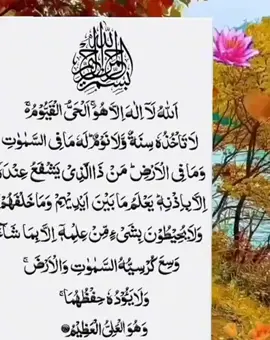 بِسْمِ اللهِ الرَّحْمٰنِ الرَّحِيْمِ
اَللهُ لَآ اِلٰهَ اِلَّا هُوَ ۚ اَلْحَيُّ الْقَيُّوْمُ ۚ
لَا تَاْخُذُهٗ سِنَةٌ وَّلَا نَوْمٌ ؕ لَهٗ مَا فِي السَّمٰوٰتِ
وَمَا فِي الْاَرْضِ ؕ مَنْ ذَا الَّذِيْ يَشْفَعُ عِنْدَهٗ
اِلَّا بِاِذْنِهٖ ؕ يَعْلَمُ مَا بَيْنَ اَيْدِيْهِمْ وَمَا خَلْفَهُمْ
وَلَا يُحِيْطُوْنَ بِشَيْءٍ مِّنْ عِلْمِهٖٓ اِلَّا بِمَا شَآءَ
وَسِعَ كُرْسِيُّهُ السَّمٰوٰتِ وَالْاَرْضَ ۚ
وَلَا يَـُٔوْدُهٗ حِفْظُهُمَا ۚ
وَهُوَ الْعَلِيُّ الْعَظِيْمُ